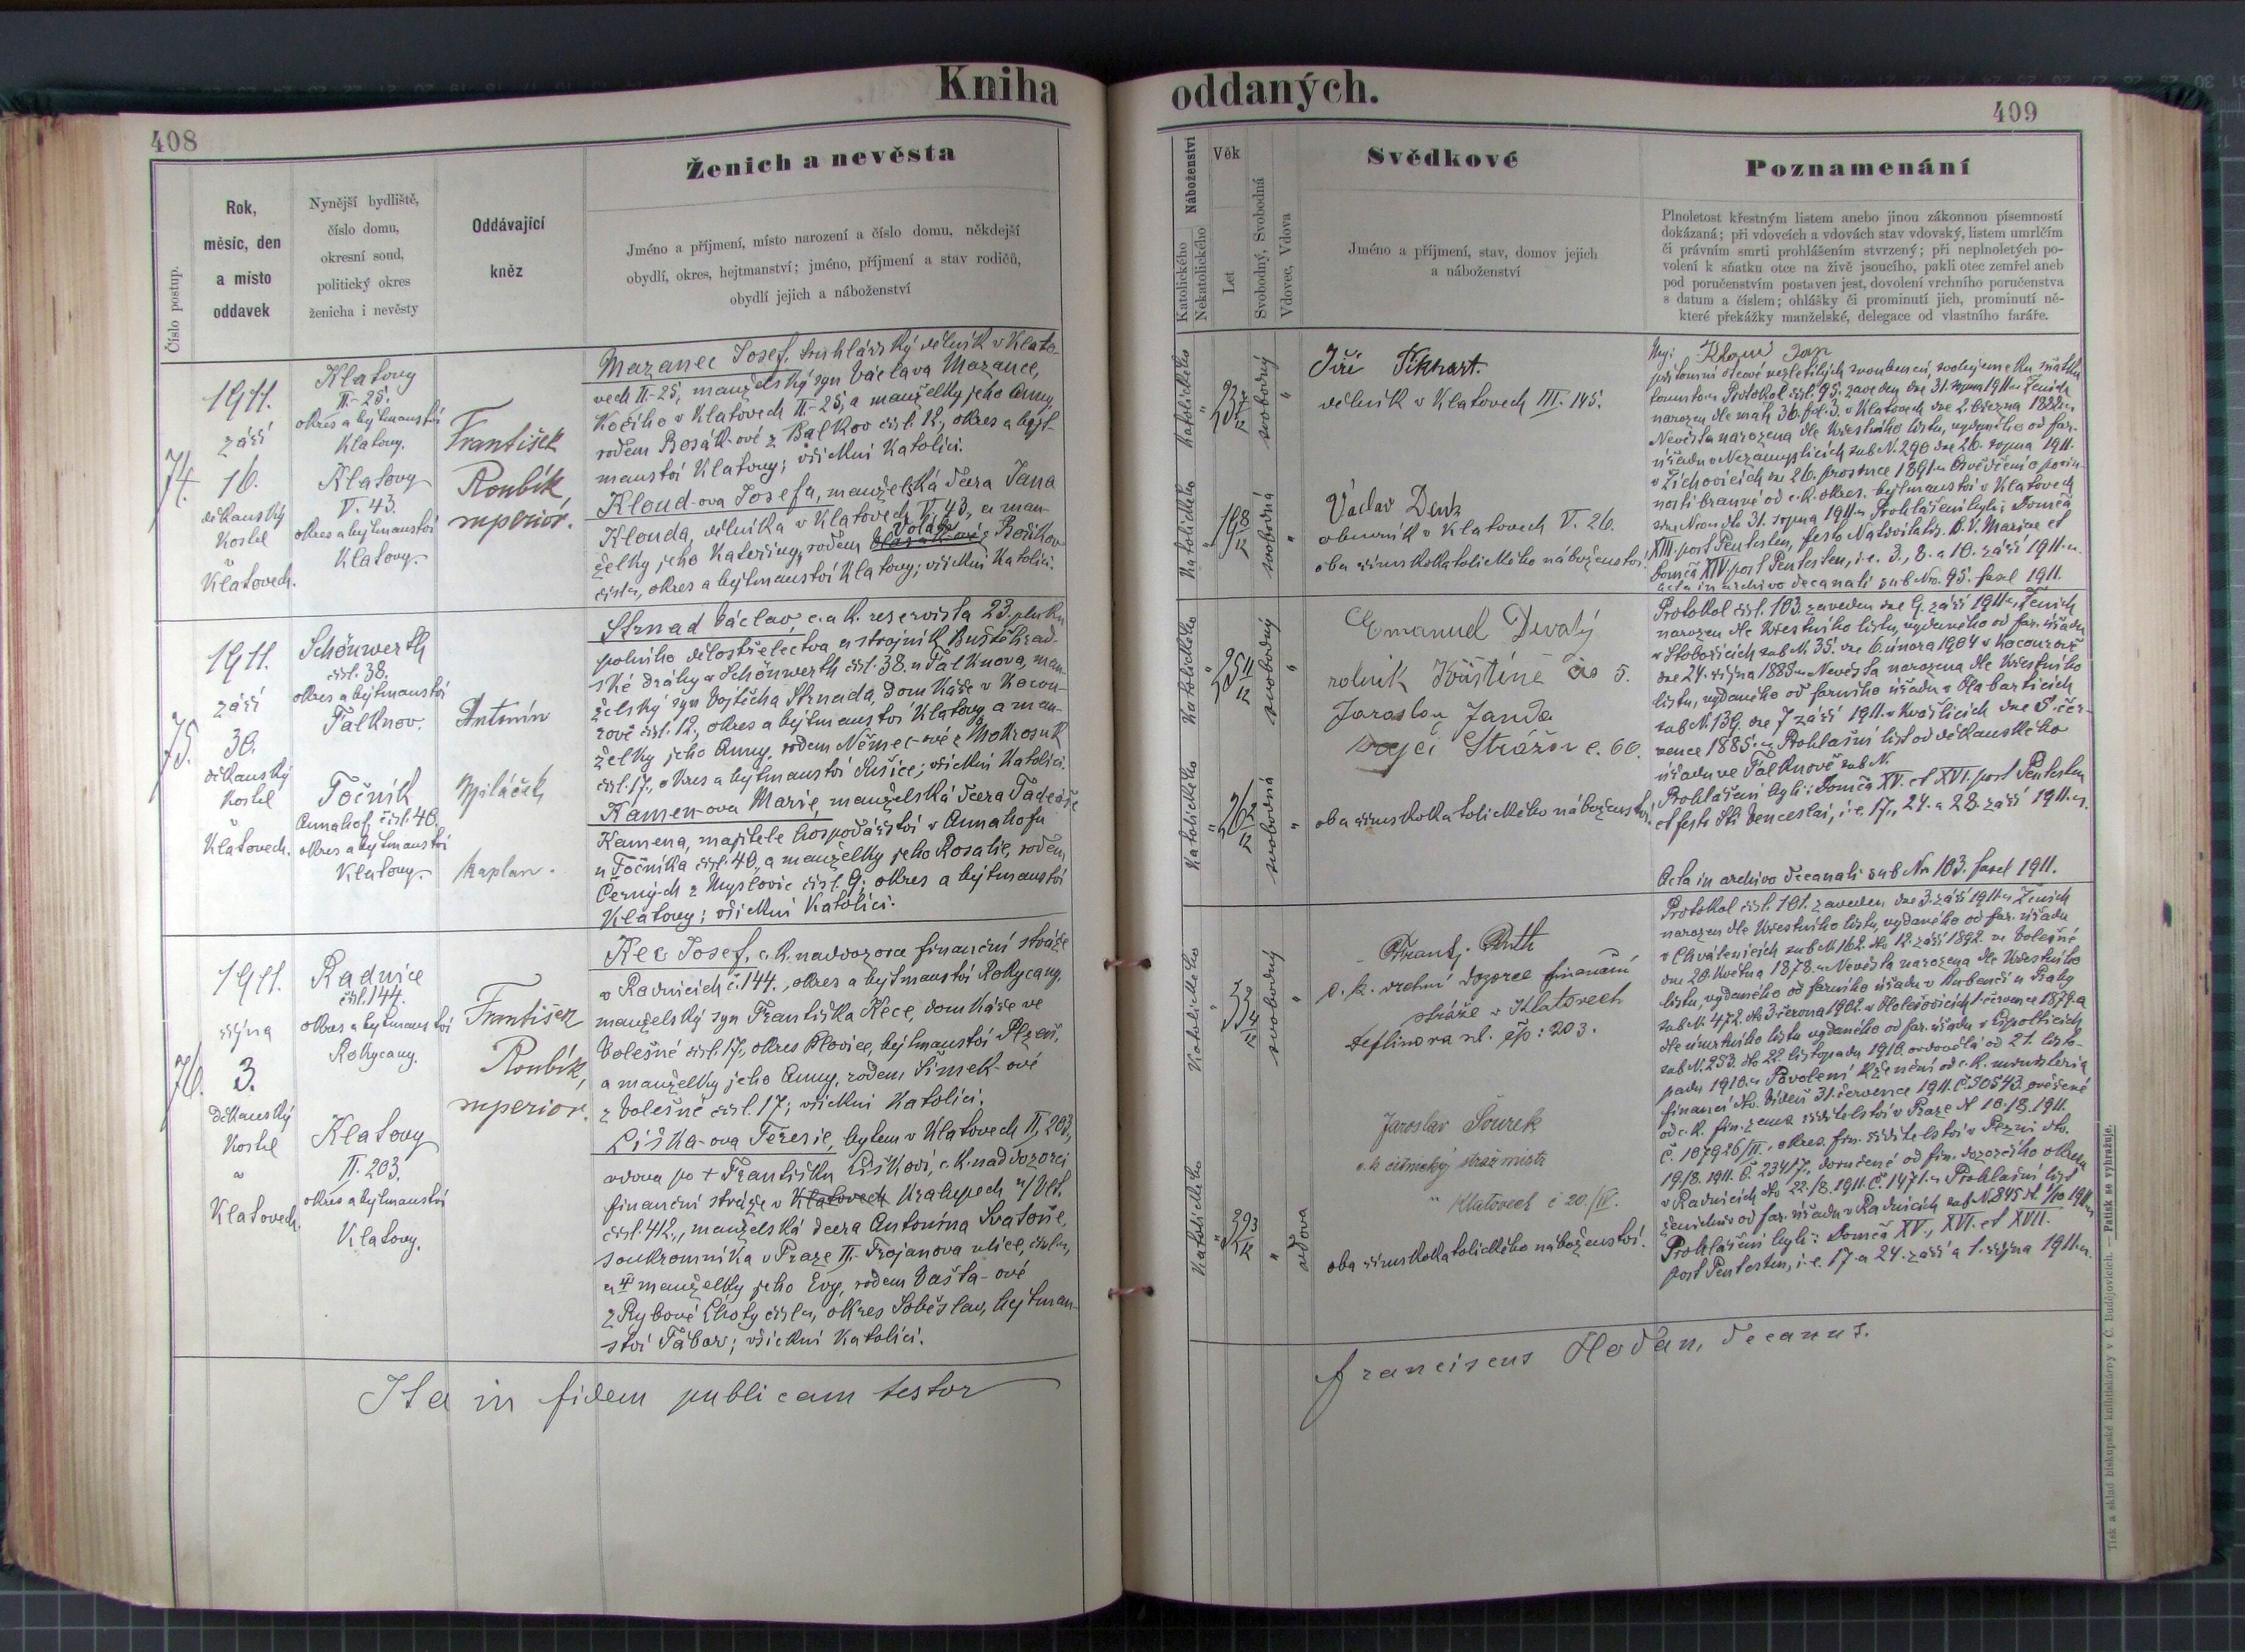 Kniha
oddaných.
408
409
Číslo postup.
Rok,
měsíc, den
a místo
oddavek
Nynější bydliště,
číslo domu,
okresní soud,
politický okres
ženicha i nevěsty
Oddávající
kněz
Ženich a nevěsta
Jméno a příjmení, místo narození a číslo domu, někdejší
obydlí, okres, hejtmanství; jméno, příjmení a stav rodičů,
obydlí jejich a náboženství
Náboženství
Katolického
Nekatolického
Věk
Let
Svobodný, Svobodná
Vdovec, Vdova
Svědkové
Jméno a příjmení, stav, domov jejich
a náboženství
Poznamenání
Plnoletost křestným listem anebo jinou zákonnou písemností
dokázaná; při vdovcích a vdovách stav vdovský, listem umrlčím
či právním smrti prohlášením stvrzený; při neplnoletých po-
volení k sňatku otce na živě jsoucího, pakli otec zemřel aneb
pod poručenstvím postaven jest, dovolení vrchního poručenstva
s datum a číslem; ohlášky či prominutí jich, prominutí ně-
které překážky manželské, delegace od vlastního faráře.
74.
1911.
září
16.
děkanský
kostel
v
Klatovech.
Klatovy
II.-25.
okres a hejtmanství
Klatovy.
Klatovy
V. 43.
okres a hejtmanství
Klatovy.
František
Roubík,
superior.
Mazanec Josef, truhlářský dělník v Klato-
vech II-25, manželský syn Václava Mazance,
kočího v Klatovech II-25, a manželky jeho Anny,
rodem Bosák-ové z Balkov čísl. 12, okres a hejt-
manství Klatovy; všickni katolíci.
Kloud-ova Josefa, manželská dcera Jana
Klouda, dělníka v Klatovech V. 43, a man-
želky jeho Kateřiny, rodem Bořikov
čísla, okres a hejtmanství Klatovy; všickni katolíci.
Katolického
svobodný
Katolického
svobodná
Jiří
dělník v Klatovech III. 145.
Václav Denk
obuvník v Klatovech V. 26.
oba římskokatolického náboženství.
Protokol čísl. 95. zaveden dne 31. srpna 1911. Ženich
narozen dle matr. 36. fol. 3. v Klatovech dne 2. března 1888.
Nevěsta narozena dle křestního listu, vydaného od far.
úřadu v Nezamyslicích sub N. 290 dne 26. srpna 1911.
v Žichovicích dne 26. prosince 1891. Osvědčení o povin-
nosti branné od c. k. okres. hejtmanství v Klatovech
31. srpna 1911. Prohlášeni byli: Domca
XIII. post Pentecosten, festo Nativitatis B. V. Mariae et
Domca XIV. post Pentecosten, i. e. 3., 8. a 10. září 1911.
Acta in archivo decanali sub No. 95. fasc. 1911.
75.
1911.
září
30.
děkanský
kostel
v
Klatovech.
Schönwerth
čísl. 38.
okres a hejtmanství
Falknov.
Točník
Annahof, čísl. 40.
okres a hejtmanství
Klatovy.
Antonín
Miláček,
kaplan.
Strnad Václav, c. a k. reservista 23. pluku
polního dělostřelectva a strojník Buštěhrad-
ské dráhy v Schönwerth čísl. 38. u Falknova, man-
želský syn Vojtěcha Strnada, domkáře v Kocou-
rově čísl. 12, okres a hejtmanství Klatovy a man-
želky jeho Anny, rodem Němec-ové z Mokrosuk
čísl. 17., okres a hejtmanství Sušice; všickni katolíci.
Kamen-ova Marie, manželská dcera Tadeáše
Kamena, majitele hospodářství v Annahofu
u Točníka čísl. 40, a manželky jeho Rosalie, rodem
Černých z Myslovic čísl. 9; okres a hejtmanství
Klatovy; všickni katolíci.
Katolického
svobodný
Katolického
svobodná
Emanuel Divalý
rolník Křištíně čís 5.
Jaroslav Janda
Strážov č. 60.
oba římskokatolického náboženství.
Protokol čísl. 103. zaveden dne 9. září 1911. Ženich
narozen dle křestního listu, vydaného od far. úřadu
v Stobořicích sub N. 35. dne 6. února 1904 v Kocourově
dne 24. října 1885. Nevěsta narozena dle křestního
listu, vydaného od farního úřadu v Habarticích
sub N. 139. dne 7. září 1911. v Kvášlicích dne 5. čer-
vence 1885. Prohlašní list od děkanského
úřadu ve Falknově sub N.
Prohlášeni byli: Domca XV. et XVI. post Pentecosten
et festo Sti Venceslai, i. e. 17., 24. a 28. září 1911.
Acta in archivo decanali sub No 103. fascl 1911.
76.
1911.
října
3.
Děkanský
kostel
v
Klatovech.
Radnice
čísl. 144.
okres a hejtmanství
Rokycany.
Klatovy
II. 203.
okres a hejtmanství
Klatovy.
František
Roubík,
superior.
Kec Josef, c. k. naddozorce finanční stráže
v Radnicích č. 144., okres a hejtmanství Rokycany,
manželský syn Františka Kece, domkáře ve
Volešné čísl. 17., okres Blovice, hejtmanství Plzeň,
a manželky jeho Anny, rodem Šimek-ové
z Volešné čísl. 17; všickni katolíci.
Liška-ova Terezie, bytem v Klatovech II, 203,
vdova po + Františku Liškovi, c. k. naddozorci
finanční stráže v Klatovech Kralupech n/Vlt.
čísl. 412., manželská dcera Antonína Svatoše,
soukromníka v Praze II. Trojanova ulice, čísla,
a + manželky jeho Evy, rodem Vašta-ové
z Rybové Lhoty čísla, okres Soběslav, hejtman-
ství Tábor; všickni katolíci.
Katolického
svobodný
Katolického
vdova
Frant. Ruth
c. k. vrchní dozorce finanční
stráže v Klatovech
čp: 203.
Jaroslav Šourek
c. k. četnický strážmistr
v Klatovech č 20./IV.
oba římskokatolického náboženství.
Protokol čísl. 101. zaveden dne 3. září 1911. Ženich
narozen dle křestního listu, vydaného od far. úřadu
v Chválenicích sub N. 162. dto 12. září 1892. ve Volešné
dne 20. května 1878. Nevěsta narozena dle křestního
listu, vydaného od farního úřadu v Bubenči u Prahy
sub N. 472. dto 3. června 1902. v Holešovicích 1. července 1879. a
dle úmrtního listu vydaného od far. úřadu v
sub N. 253. dto 22. listopadu 1910. ovdověla od 21. listo-
padu 1910. Povolení k ženění od c. k. ministeria
financí dto. Vídeň 31. července 1911. Č. 50543. 
od c. k. fin. zems. ředitelství v Praze dt 10./8. 1911.
Č. 107926/III., okres. fin. ředitelství v Plzni dto.
19./8. 1911. Č. 23417., doručené od fin. dozorčího okresu
v Radnicích dto 22./8. 1911. Č. 1471. Prohlašní list
ženichův od far. úřadu v Radnicích sub N. 845 dt. 1/10 1911.
Prohlášeni byli: Domca XV., XVI. et XVII.
post Pentecosten, i. e. 17. a 24. září a 1. října 1911.
Ita in fidem publicam testor
Franciscus Hoďan, Decanus.
Tisk a sklad biskupské knihtiskárny v Č. Budějovicích. — Patisk se vyhražuje.